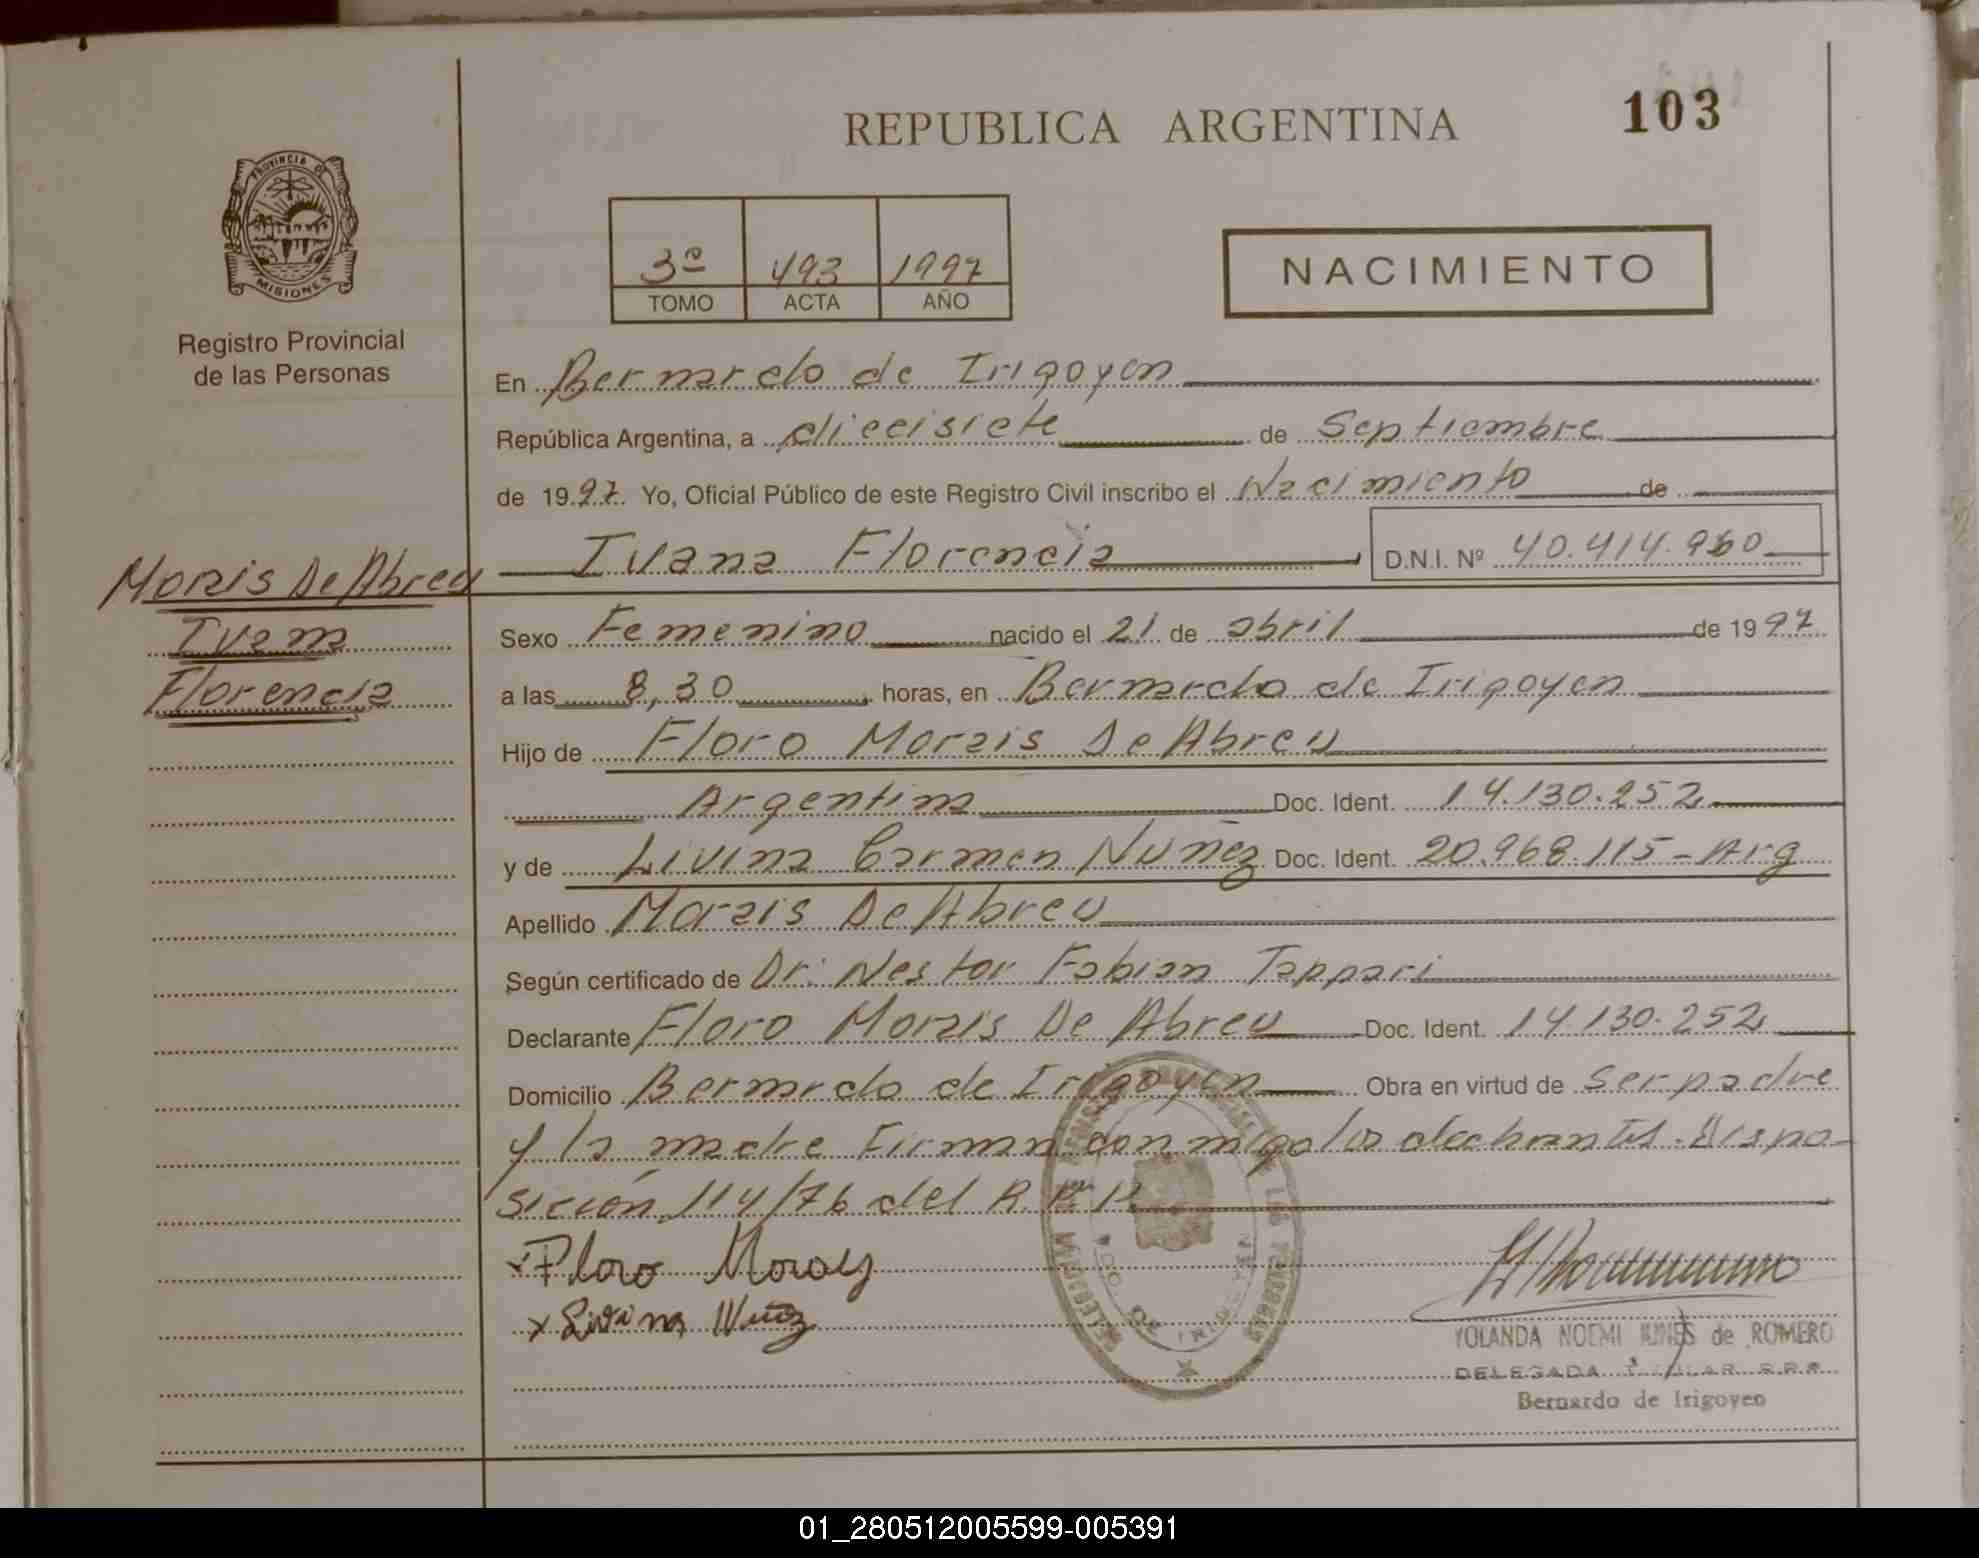 REPUBLICA ARGENTINA
103
PROVINCIA DE
MISIONES
Registro Provincial
de las Personas
3º 493 1997
TOMO ACTA AÑO
NACIMIENTO
En Bernardo de Irigoyen
República Argentina, a diecisiete de Septiembre
de 1997. Yo, Oficial Público de este Registro Civil inscribo el Nacimiento de
Ivana Florencia D.N.I. Nº 40.414.960
Morais De Abreu
Ivana
Florencia
Sexo Femenino nacido el 21 de abril de 1997
a las 8,30 horas, en Bernardo de Irigoyen
Hijo de Floro Morais De Abreu
Argentina Doc. Ident. 14.130.252
y de Livina Carmen Nuñez Doc. Ident. 20.968.115 - Arg
Apellido Morais De Abreu
Según certificado de Dr. Nestor Fabian Tappari
Declarante Floro Morais De Abreu Doc. Ident. 14.130.252
Domicilio Bernardo de Irigoyen Obra en virtud de ser padre
y la madre Firman conmigo los declarantes. Dispo-
sición 114/76 del R.P.P.
x Floro Morais
x Livina Nuñez
YOLANDA NOEMI de ROMERO
DELEGADA TITULAR R.P.P.
Bernardo de Irigoyen
01_280512005599-005391